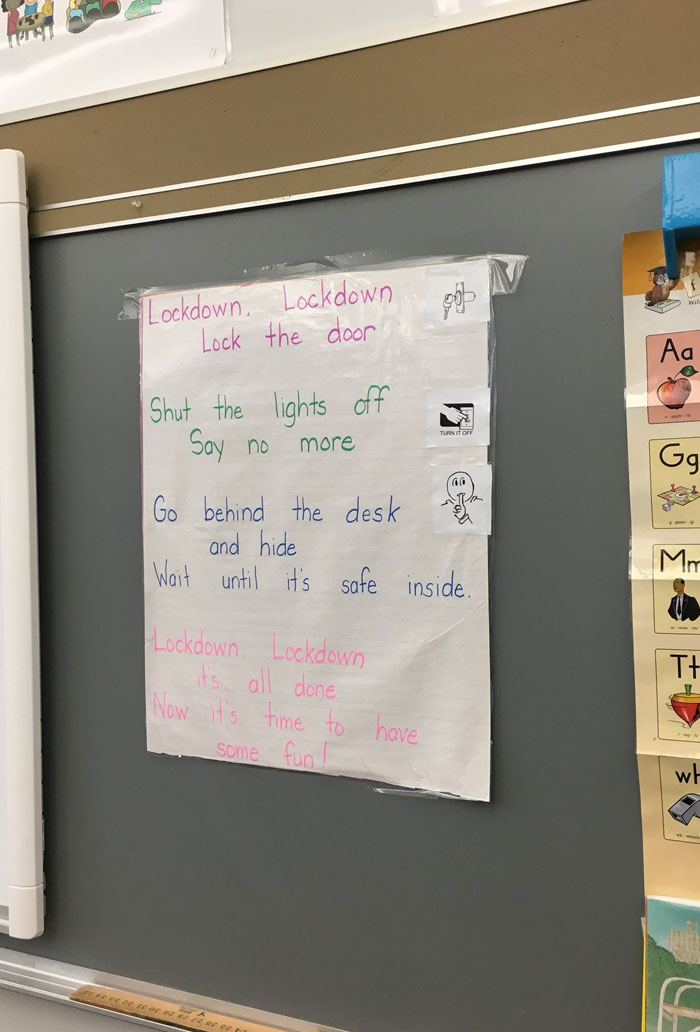 Lockdown, Lockdown
Lock the door
Shut the lights off
Say no more
TURN IT OFF
Go behind the desk
and hide
Wait until it's safe inside.
Lockdown. Lockdown
it's all done.
Now it's time to have
some fun!
Aa
Gg
Mm
Tt
wh